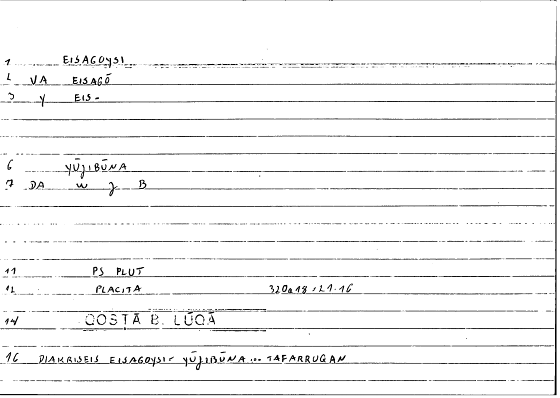 1 EISAGOYSI
2 VA EISAGŌ
3 Y EIS-
6 YŪJIBŪNA
7 DA W J B
11 PS PLUT
12 PLACITA 320a18,21-16
14 QOSṬĀ B. LŪQĀ
16 DIAKRISEIS EISAGOYSI- YŪJIBŪNA ... TAFARRUQAN